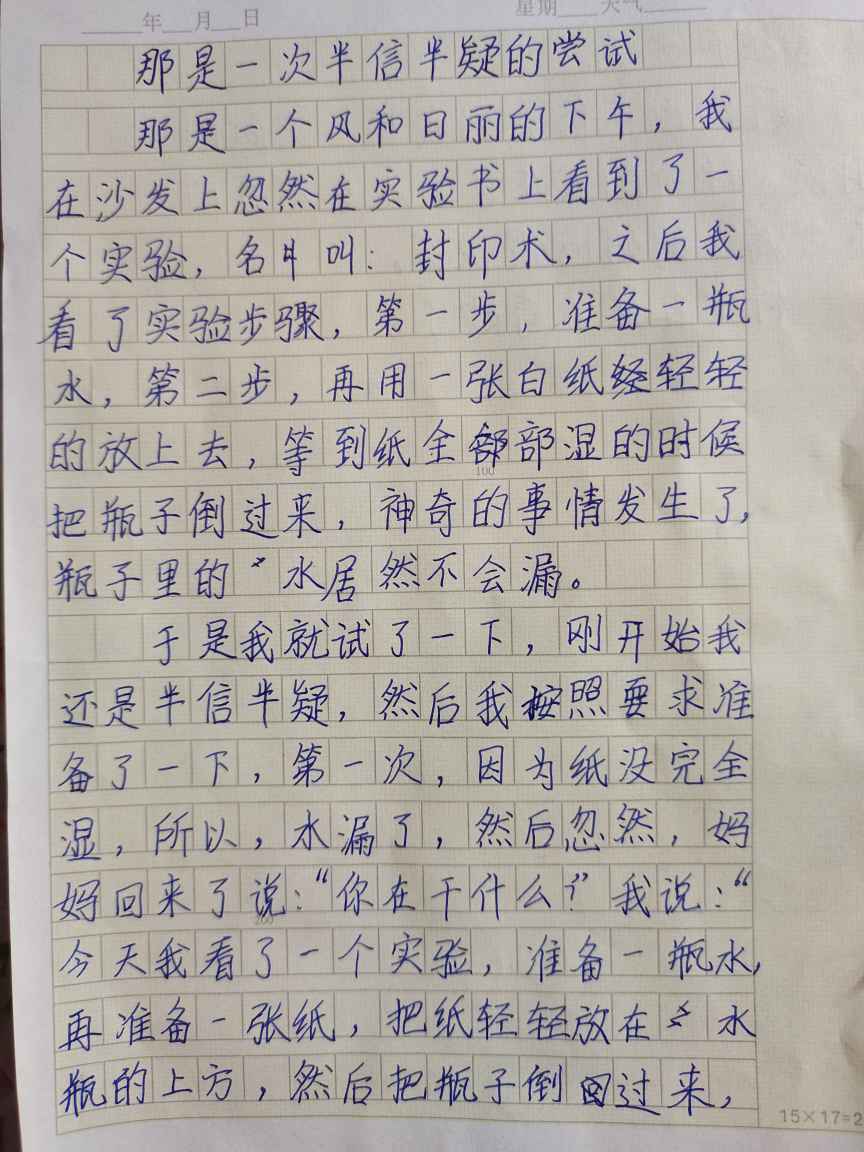 年 月 日 星期 天气
那是一次半信半疑的尝试
那是一个风和日丽的下午，我
在沙发上忽然在实验书上看到了一
个实验，名叫：封印术，之后我
看了实验步骤，第一步，准备一瓶
水，第二步，再用一张白纸轻轻
的放上去，等到纸全部湿的时候
把瓶子倒过来，神奇的事情发生了，
瓶子里的水居然不会漏。
于是我就试了一下，刚开始我
还是半信半疑，然后我按照要求准
备了一下，第一次，因为纸没完全
湿，所以，水漏了，然后忽然，妈
妈回来了说：“你在干什么？”我说：“
今天我看了一个实验，准备一瓶水，
再准备一张纸，把纸轻轻放在水
瓶的上方，然后把瓶子倒过来，
100
200
15×17=2